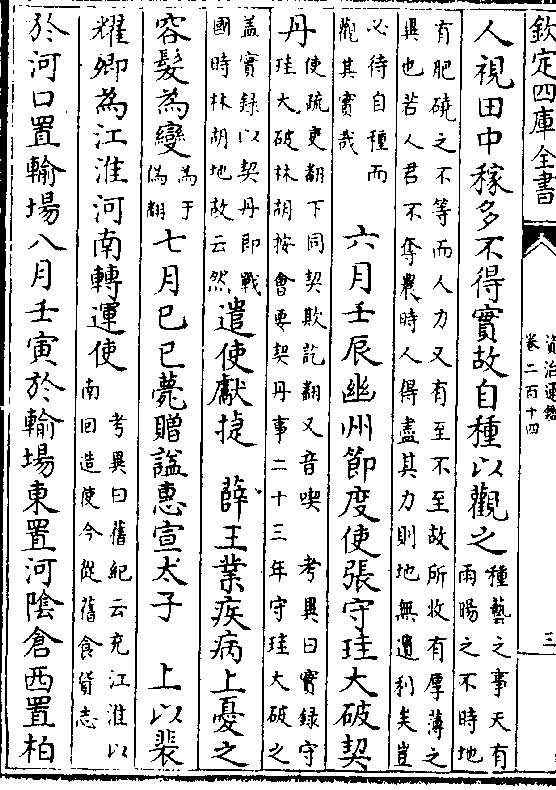 欽定四庫全書
資治通鑑
卷二百十四
三
人視田中稼多不得實故自種以觀之種藝之事天有
雨暘之不時地
有肥磽之不等而人力又有至不至故所收有厚薄之
異也若人君不奪農時人得盡其力則地無遺利矣豈
必待自種而
觀其實哉
六月壬辰幽州節度使張守珪大破契
丹使疏吏翻下同契欺訖翻又音喫 考異曰實録守
珪大破林胡按會要契丹事二十三年守珪大破之
盖實録以契丹即戰
國時林胡地故云然
遣使獻捷 薛王業疾病上憂之
容髮為變為于
偽翻
七月已已薨贈諡惠宣太子 上以裴
耀卿為江淮河南轉運使考異曰舊紀云充江淮以
南回造使今從舊食貨志
於河口置輸場八月壬寅於輸場東置河隂倉西置柏